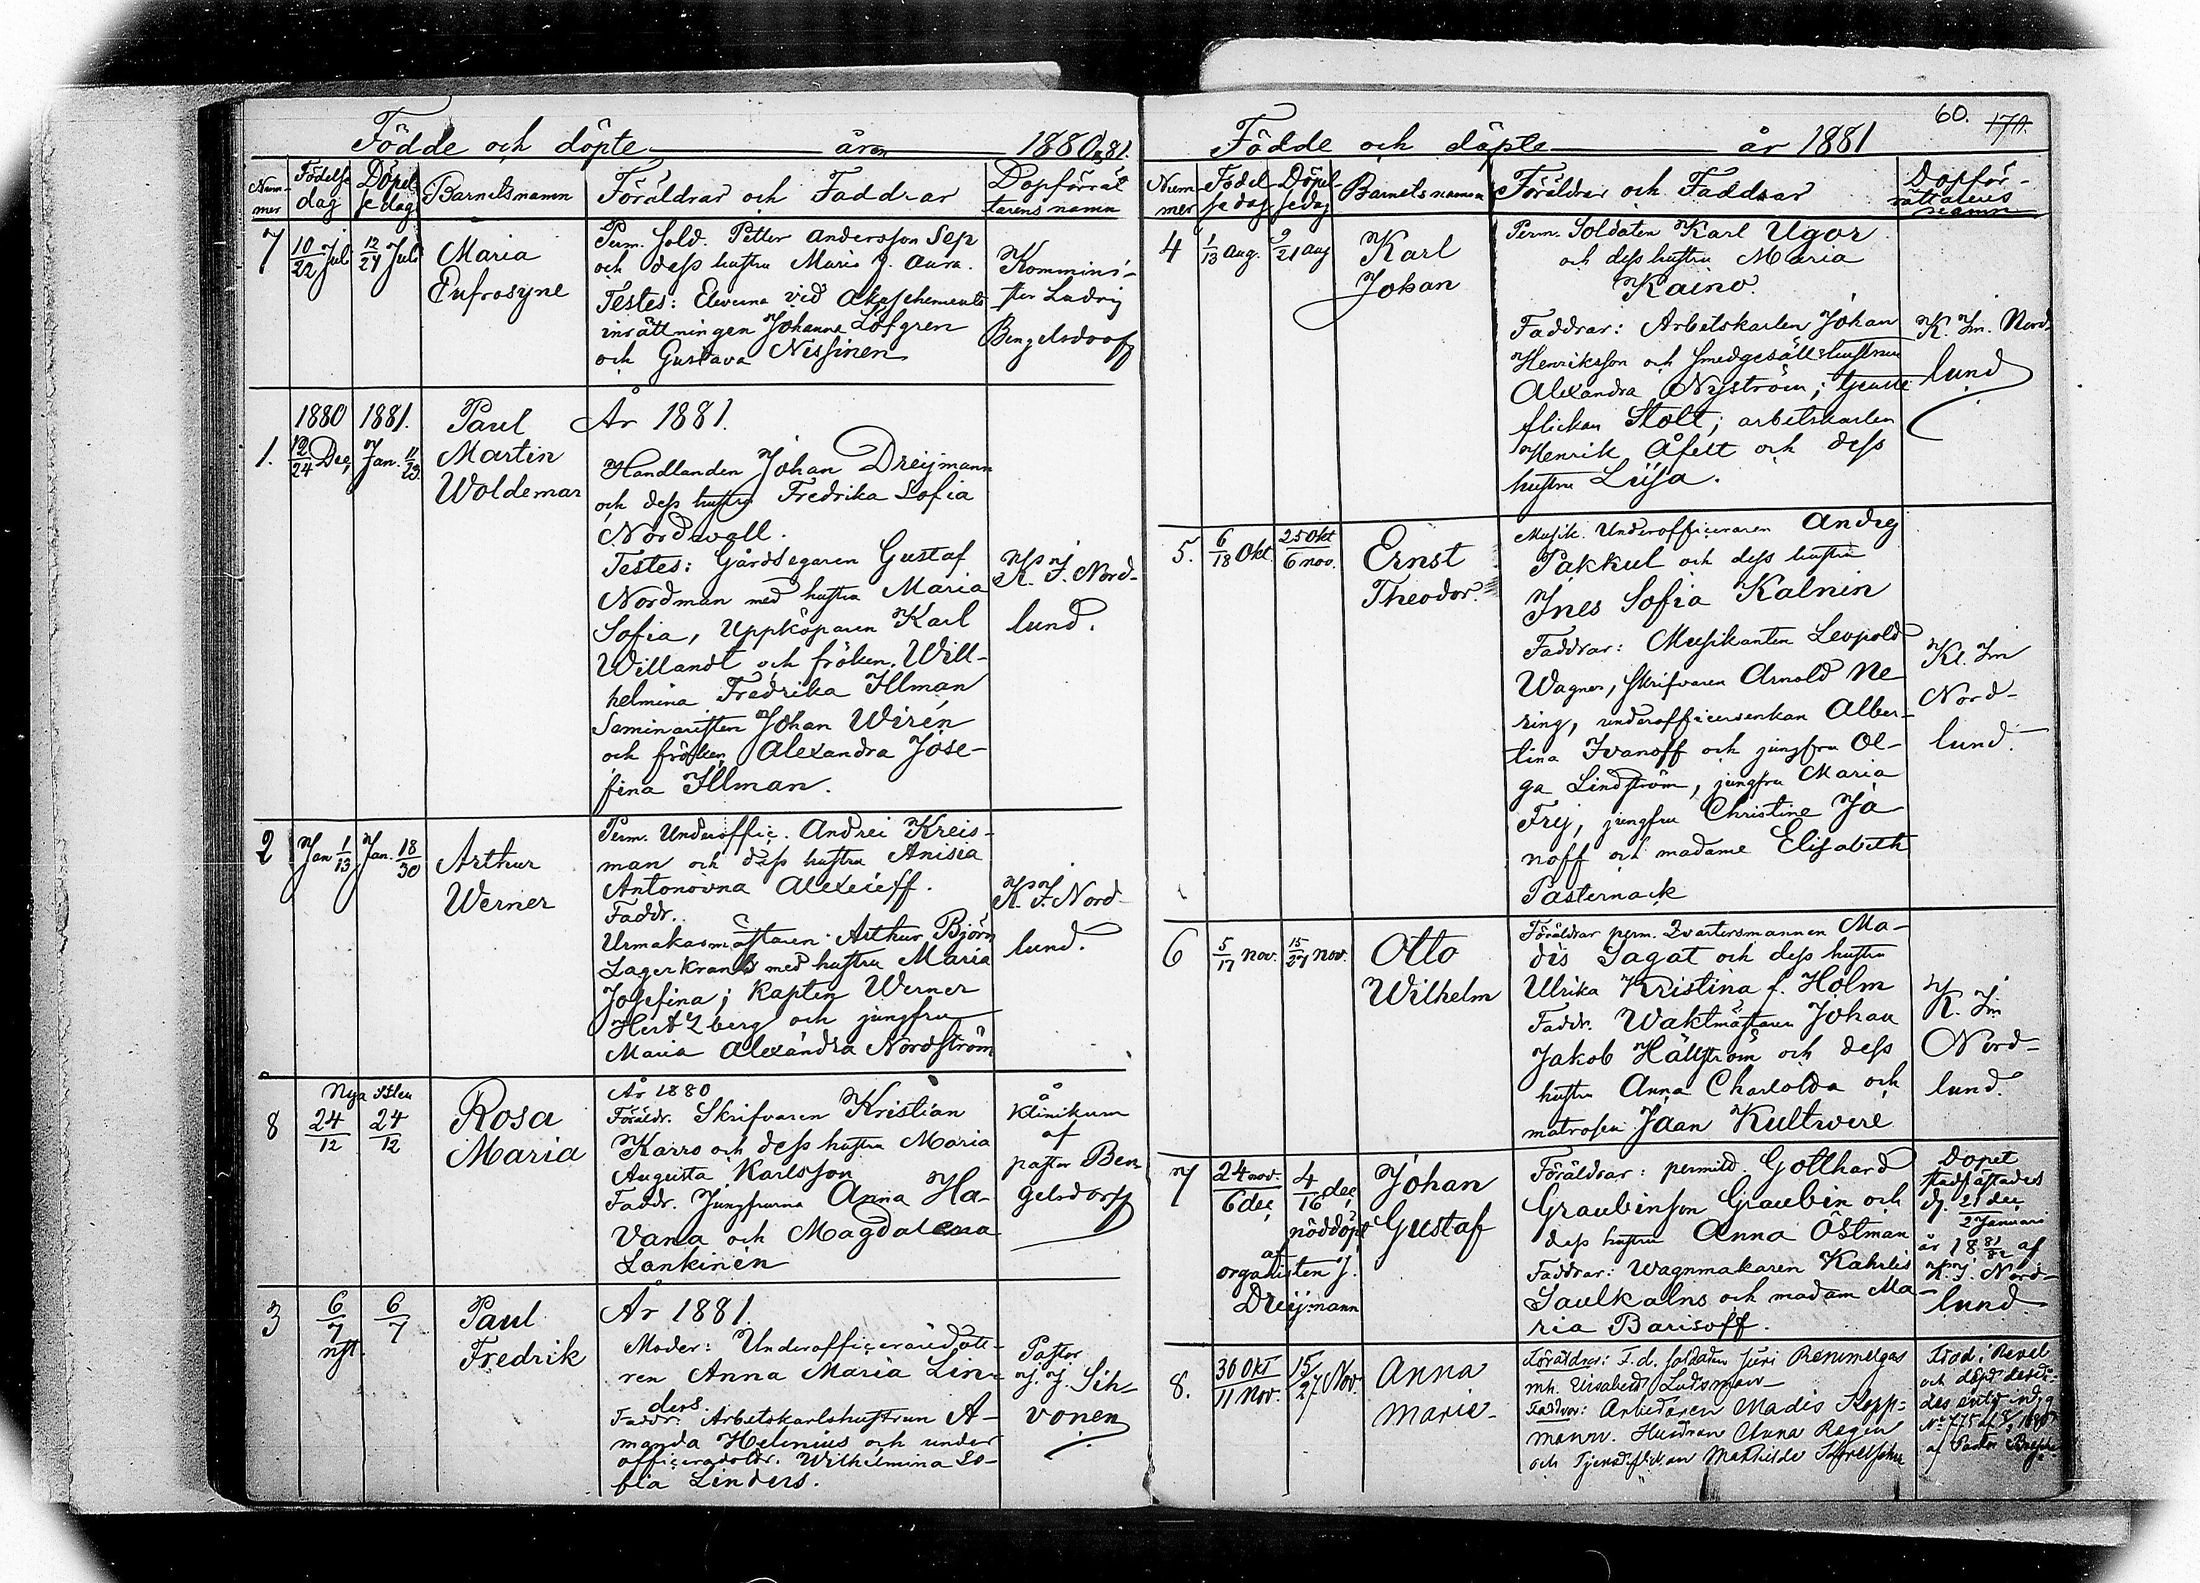 Födde och döpte åren 1880 o 81.
Num-mer Födelse dag Döpel-se dag Barnets namn Föräldrar och Faddrar Dopförrät-tarens namn
7 10/22 Juli 12/24 Juli Maria Eufrosyne
Perm. Sold. Petter Andersson Sep
och dess hustru Maria J. Aura.
Testes: Eleverna vid Akuschements
inrättningen Johanna Löfgren
och Gustava Nissinen
Kommini-
ster Ludvig
Bengelsdorff
1. 1880 12/24 Dec, 1881. Jan. 11/23. Paul
Martin
Woldemar
År 1881.
Handlanden Johan Dreijmann
och dess hustru Fredrika Sofia
Nordwall.
Testes: Gårdsegaren Gustaf
Nordman med hustru Maria
Sofia, Uppköparen Karl
Willandt och fröken Will-
helmina Fredrika Illman
Seminaristen Johan Wirén
och fröken Alexandra Jose-
fina Illman.
K. J. Nord-
lund.
2 Jan 1/13 Jan. 18/30 Arthur
Werner
Perm. Underoffic. Andrei Kreis-
man och dess hustru Anisia
Antonovna Alexeieff.
Faddr.
Urmakarmästaren Arthur Björn
Lagerkrans med hustru Maria
Josefina; Kapten Werner
Hertzberg och jungfru
Maria Alexandra Nordström
K. J. Nord-
lund.
8 Nya Stilen 24/12 24/12 Rosa
Maria
År 1880
Föräldr. Skrifvaren Kristian
Karro och dess hustru Maria
Augusta Karlsson
Faddr. Jungfrurna Anna Ha-
vana och Magdalena
Lankinen
Å
Klinikum
af
pastor Ben-
gelsdorff
3 6/7 nst. 6/7 Paul
Fredrik
År 1881.
Moder: Underofficersdott-
ren Anna Maria Lin-
ders.
Faddr: Arbetskarlshustrun A-
manda Helenius och under
officersdottr. Wilhelmina So-
fia Linders.
Pastor
J. J. Sih-
vonen
Födde och döpte år 1881
60. 170.
Num-mer Födel-se dag Döpel-se dag Barnets namn Föräldrar och Faddrar Dopför-rättarens namn
4 1/13 Aug. 9/21 Aug Karl
Johan
Perm. Soldaten Karl Ugor
och dess hustru Maria
Kaino.
Faddrar: Arbetskarlen Johan
Henriksson och Smedgesällshustrun
Alexandra Nyström;
flickan Stolt; arbetskarlen
Henrik Åfelt och dess
hustru Lisa.
K. Im. Nord-
lund
5. 6/18 Okt. 25 Okt/6 nov. Ernst
Theodor.
Musik. Underofficeraren Andrej
Pakkul och dess hustru
Ines Sofia Kalnin
Faddrar: Musikanten Leopold
Wagner, Skrifvaren Arnold Ne
ring, underofficersenkan Alber-
tina Ivanoff och jungfru Ol-
ga Lindström, jungfru Maria
Frej, jungfru Christine Ja
noff och madame Elisabeth
Pasternack
Kl. Im
Nord-
lund.
6 5/17 nov. 15/27 nov. Otto
Wilhelm
Föräldrar perm. Qvartersmannen Ma-
dis Sagat och dess hustru
Ulrika Kristina f. Holm
Faddr. Waktmästaren Johan
Jakob Hällström och dess
hustru Anna Charlotta och
matrosen Jaan Kultwere
K. Im
Nord-
lund.
7 24 nov./6 dec 4/16 dec nöddöpt
af
organisten J.
Dreijmann
Johan
Gustaf
Föräldrar: permitd. Gotthard
Graubinson Graubin och
dess hustru Anna Östman
Faddrar: Wagnmakaren Kahrlis
Saulkalns och madam Ma-
ria Barisoff.
Dopet
stadfästades
d. 21 dec/2 Januari
år 18 81/82 af
K. J. Nord-
lund
8. 30 Okt/11 Nov. 15/27 Nov. Anna
Marie
Föräldrar: F.d. soldaten Jüri Remmelgas
mh. Lisabeth
Faddrar: Arbetaren Madis Kopp-
mann. Hustrun Anna Regin
och Tjenstflickan Mathilde
Född i Revel
och döpt
af Pastor